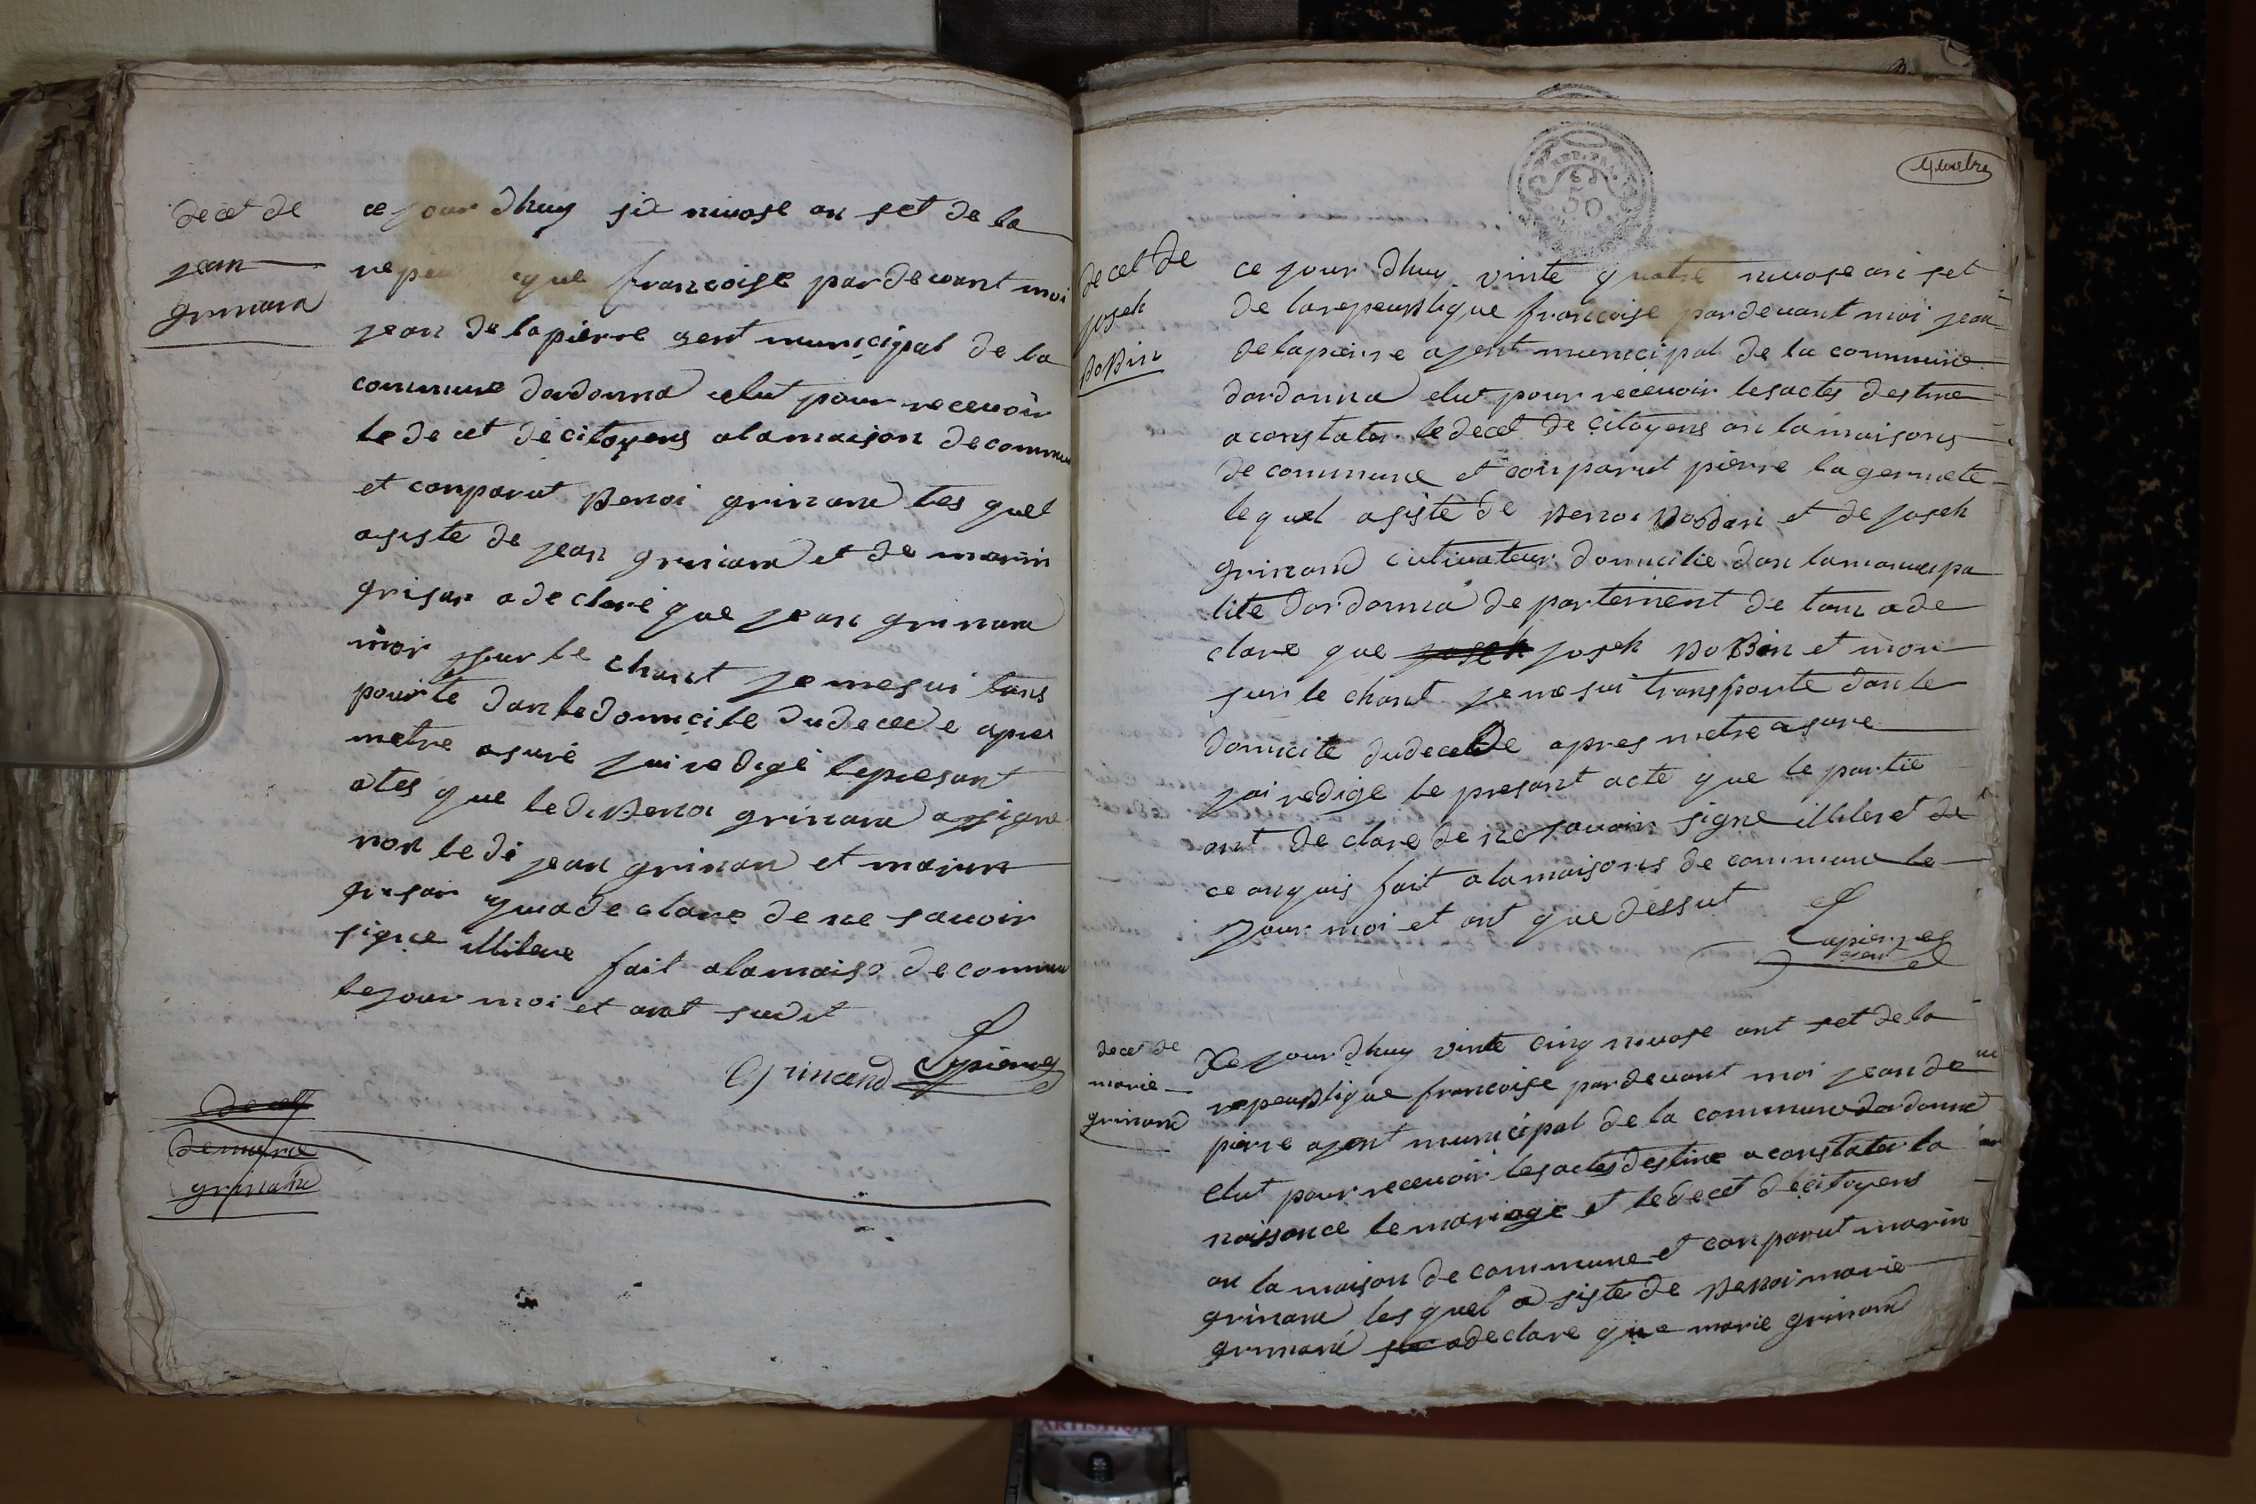 decet de
jean
grinand
ce jour dhuy sis nivose an set de la
repeu que francoise par devant moi
jean de lapierre agent municipal de la
commune dordonnd elut pour recevoir
le decet de citoyens a la maison de commune
et conparut Benoi grinand les quel
asiste de jean grinand et de marin
grisar a declaré que jean grinand
mor sur le chant je me sui tans
pourte dan le domicile du decede apres
metre asuré jai redigé le presant
ates que le di Benoi grinand a signe
non le di jean grinan et marin
grisar qui a declare de ne savoir
signe illitere fait a la maiso de commune
le jour moi et ant sudit
Grinand Lapierre
decet
de marie
grinand
quatre
REP. FRA.
50
decet de
joseh
BoBin
ce jour dhuy vinte quatre nivose an set
de la repeublique francoise par devant moi jean
delapierre ajent municipal de la commune
dordonna elut pour recevoir les actes destine
a constater le decet de citoyens an la maisons
de commune et conparut pierre la gernete
le quel asiste de Benoi Bordan et de joseh
grinand cultivateur domicilie dan la manusipa
lite dordonna de partement de lain a de
clare que joseh joseh BoBin et mor
sur le chant je me sui transporte dan le
domicile du decede apres metre asure
jai redige le presant acte que le partie
ont de clare de ne savoir signe illitere et de
ce anquis fait a la maisons de commune le
jour moi et ant que dessut
Lapierre
agent
decet de
marie
grinand
Ce jour dhuy vinte cinq nivose ant set de la
repeublique francoise par devant moi jean de la
pierre ajent municipal de la commune dordonnd
elut pour recevoir les actes destine a constater la
naissance le mariage et le decet de citoyens
an la maison de commune et conparut marin
grinand les quel a siste de Benoi marie
grinand a declare que marie grinand